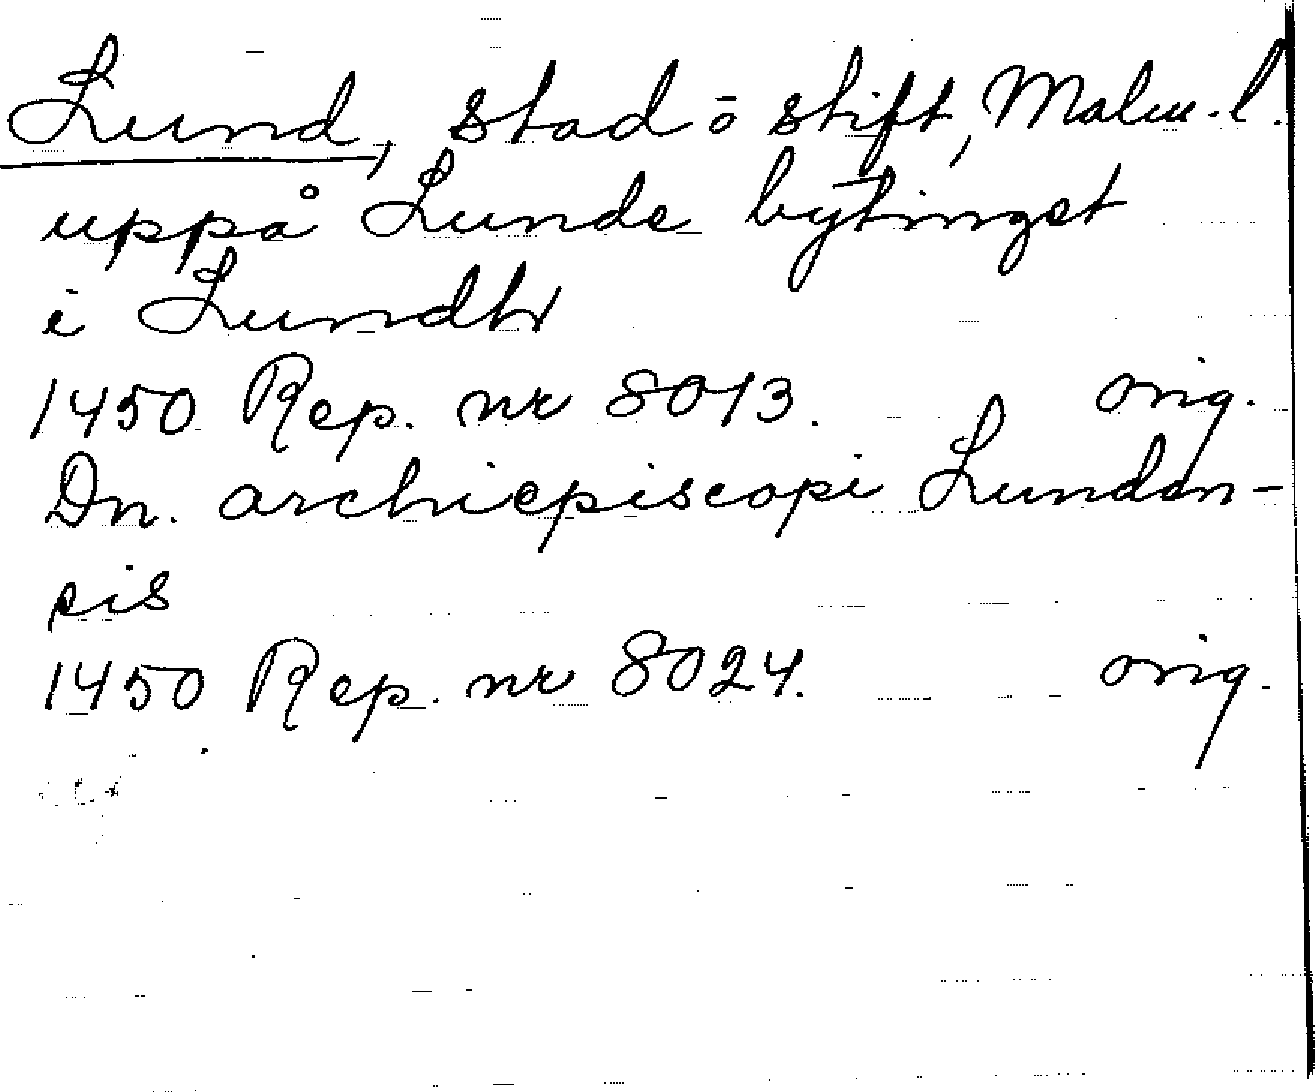 Lund, stad o stift, Malm. l.
uppå Lunde bytinget
i Lundh
1450 Rep. nr 8013. orig.
Dn. archiepiscopi Lunden-
sis
1450 Rep. nr 8024. orig.